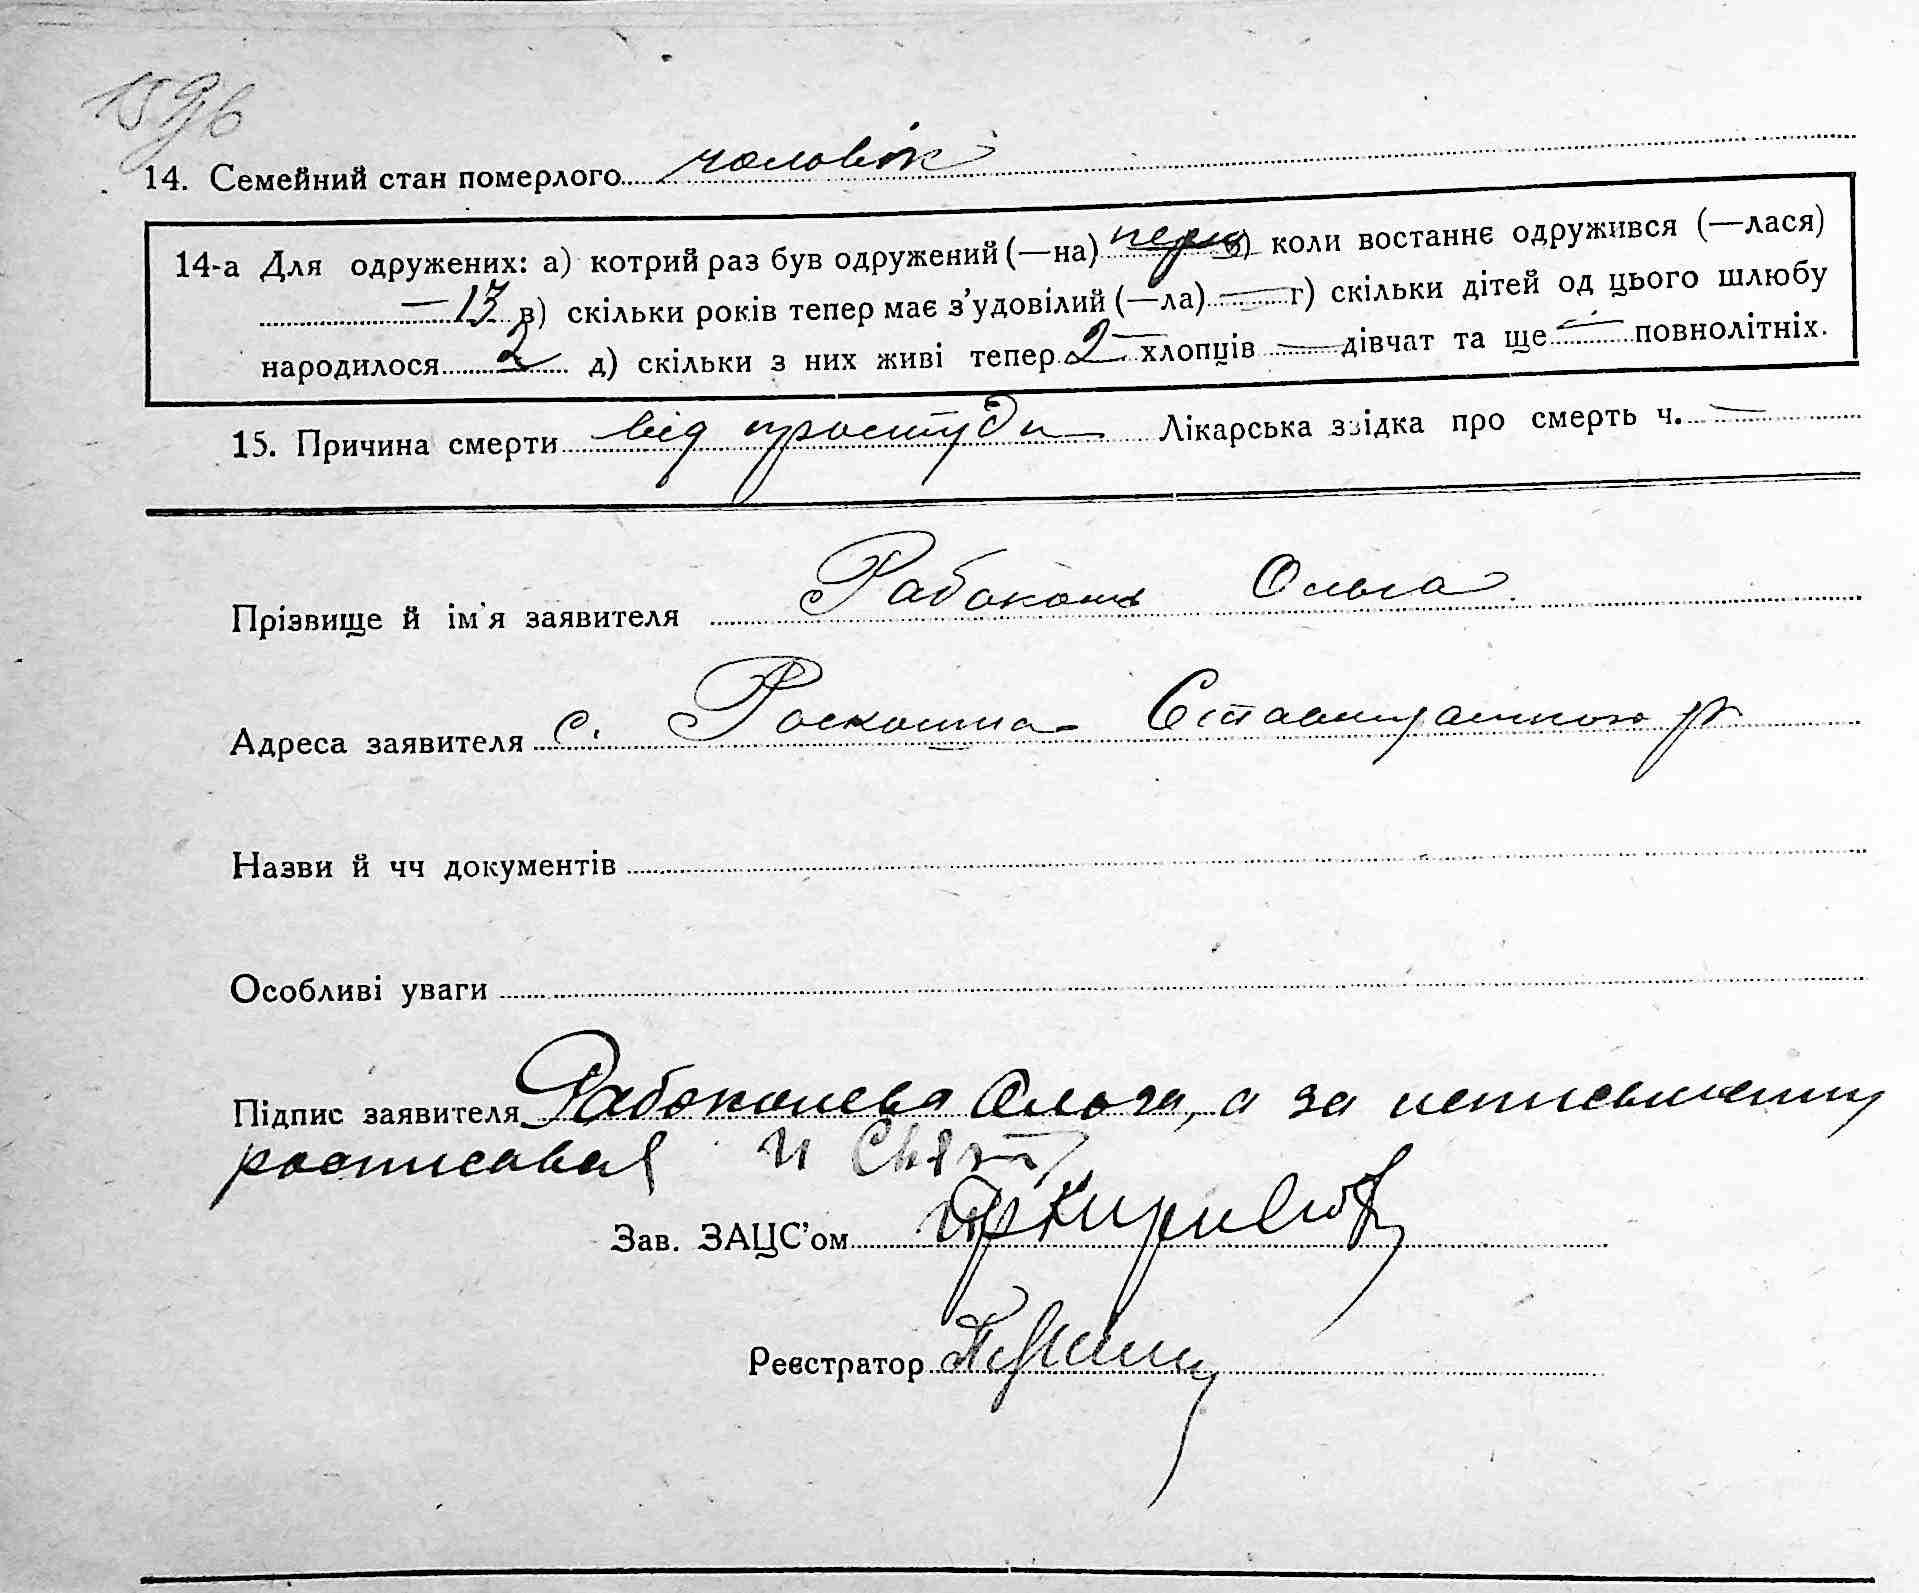 159б
14. Семейний стан померлого чоловік
14-а Для одружених: а) котрий раз був одружений (—на) перш б) коли востаннє одружився (—лася)
— 13 в) скільки років тепер має з’удовілий (—ла) — г) скільки дітей од цього шлюбу
народилося 2 д) скільки з них живі тепер 2 хлопців — дівчат та ще — повнолітніх.
15. Причина смерти від простуди Лікарська звідка про смерть ч. —
Прізвище й ім'я заявителя Рабоконь Ольга
Адреса заявителя с. Роскошна Ставищанського р
Назви й чч документів
Особливі уваги
Підпис заявителя Рабоконева Ольга, а за неписьменну
росписавсь И
Зав. ЗАЦС’ом
Реєстратор